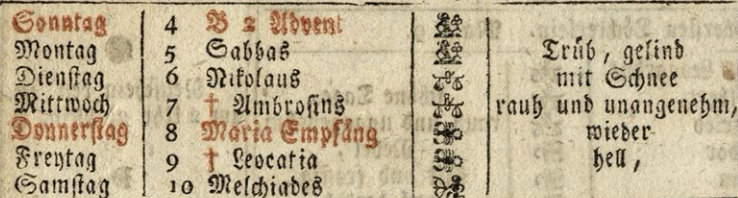 Sonntag 4 B 2 Advent
Montag 5 Sabbas Trüb, gelind
Dienstag 6 Nikolaus mit Schnee
Mittwoch 7 † Ambrosius rauh und unangenehm,
Donnerstag 8 Maria Empfäng wieder
Freytag 9 † Leocatia hell,
Samstag 10 Melchiades